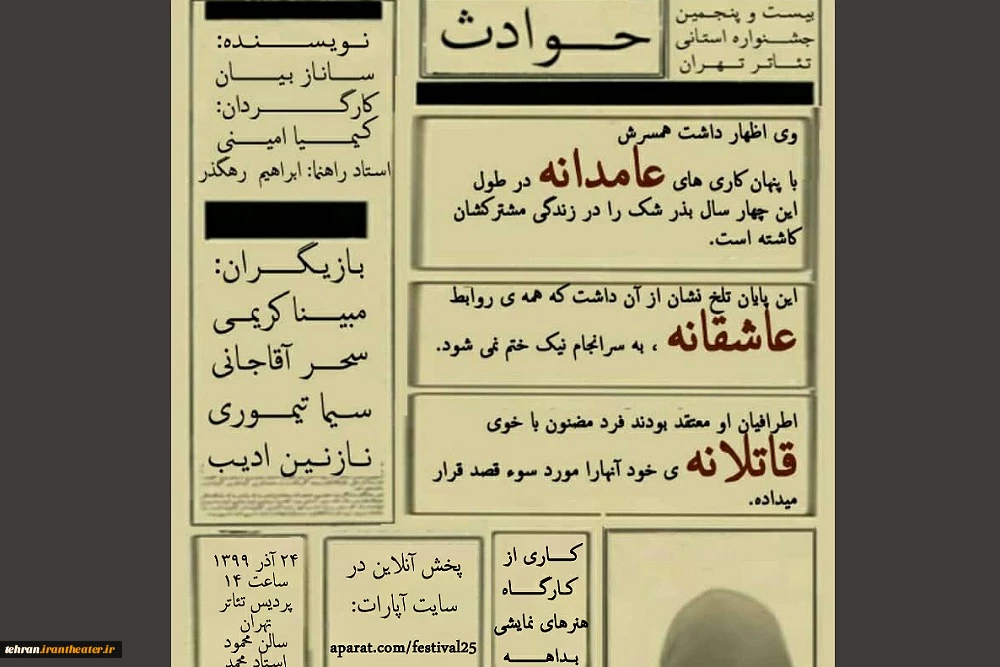 بیست و پنجمین
جشنواره استانی
تئاتر تهران
حوادث
نویسنده:
ساناز بیان
کارگردان:
کیمیا امینی
استاد راهنما: ابراهیم رهگذر
بازیگران:
مبینا کریمی
سحر آقاجانی
سیما تیموری
نازنین ادیب
وی اظهار داشت همسرش
با پنهان کاری های عامدانه در طول
این چهار سال بذر شک را در زندگی مشترکشان
کاشته است.
این پایان تلخ نشان از آن داشت که همه ی روابط
عاشقانه ، به سرانجام نیک ختم نمی شود.
اطرافیان او معتقد بودند فرد مضنون با خوی
قاتلانه ی خود آنهارا مورد سوء قصد قرار
میداده.
کاری از
کارگاه
هنرهای نمایشی
بداهه
پخش آنلاین در
سایت آپارات:
aparat.com/festival25
۲۴ آذر ۱۳۹۹
ساعت ۱۴
پردیس تئاتر
تهران
سالن محمود
استاد محمد
tehran.irantheater.ir